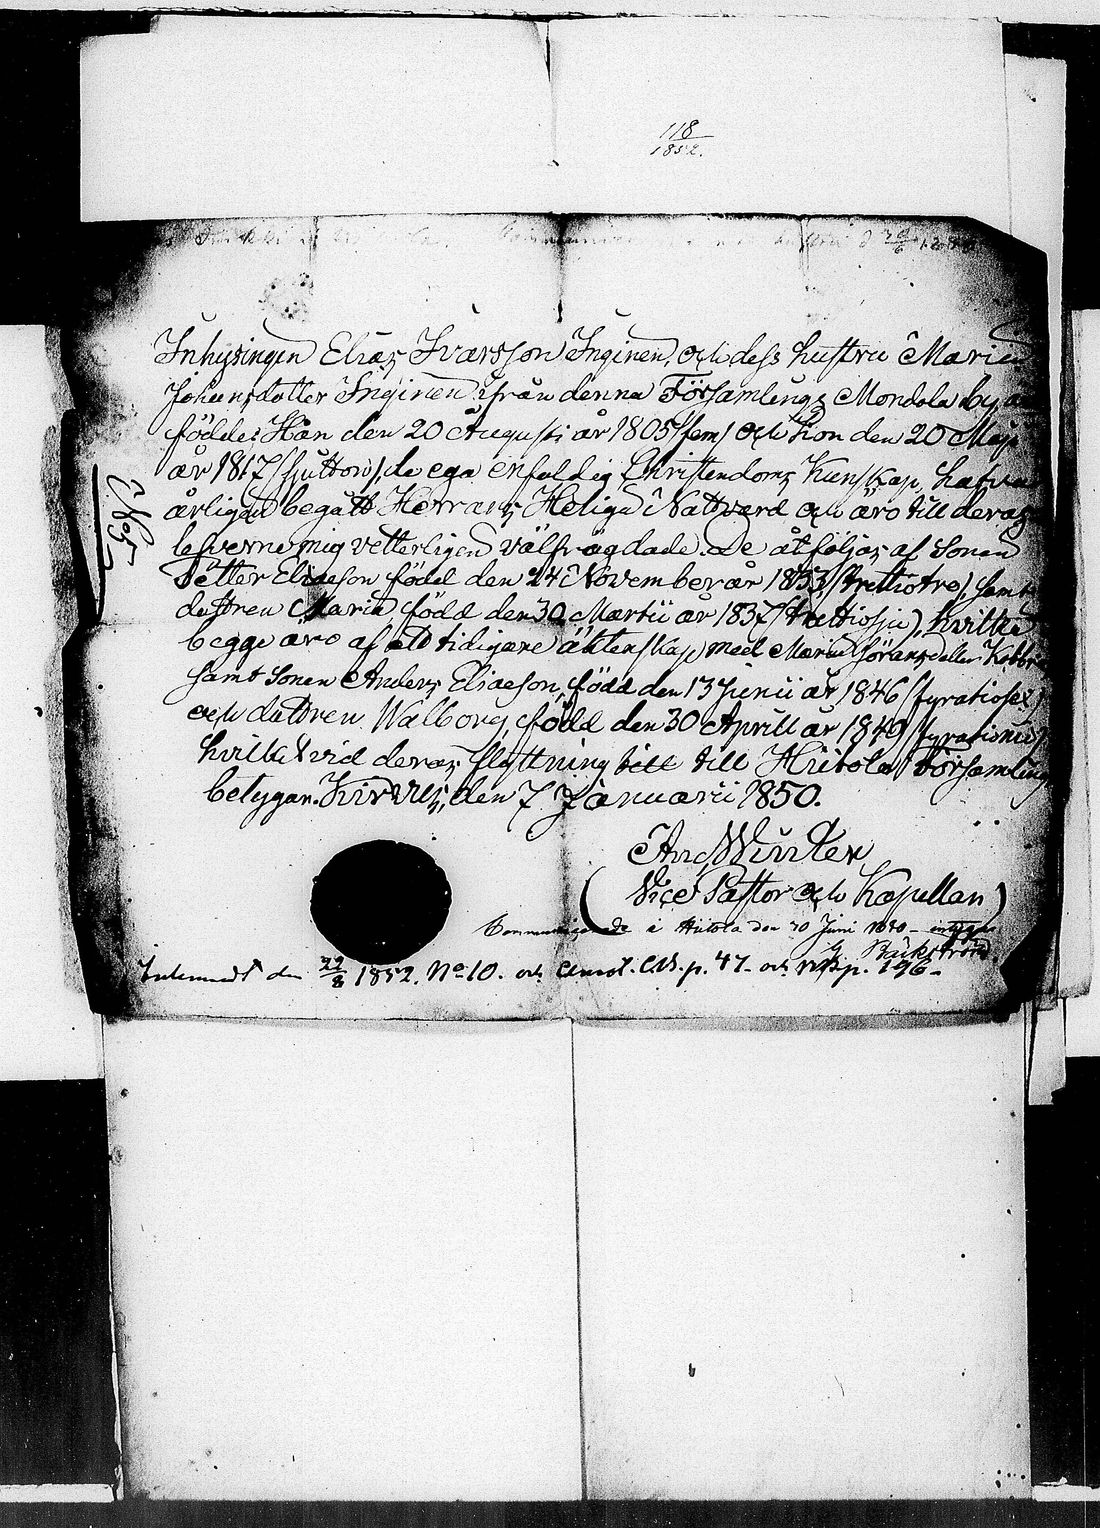 118
1852.
Inhysingen Elias Ivarsson Inginen, och dess hustru Maria
Johansdotter Inginen ifrån denna Församlings Mondola by, äro
födde: Han den 20 Augusti år 1805 (fem) och Hon den 20 Maji
år 1817 (sjutton), de ega enfaldig Christendoms Kunskap, hafva
årligen begått Herrans Heliga Nattvard och äro till deras
lefverne mig vetterligen välfrägdade. De åtföljas af Sonen
Petter Eliasson född den 24 November år 1833 (trettiotre), samt
dottren Maria, född den 30 Martii år 1837 (trettiosju), hvilka
begge äro af ett tidigare äktenskap med Maria Göransdotter
samt Sonen Anders Eliasson, född den 13 Junii år 1846 (fyratiosex)
och dottren Walborg, född den 30 Aprill år 1849 (fyrationio)
hvilket vid deras flyttning till till Hiitola Församling
betygar. Kirvus, den 7 Januarii 1850.
And. Winter
(Vice Pastor och Kapellan)
i Hiitola den 30 Juni 1850 - intygar
G. Bäckström.
den 22/8 1852. No 10. och p. 47. och p. 196.
No 5